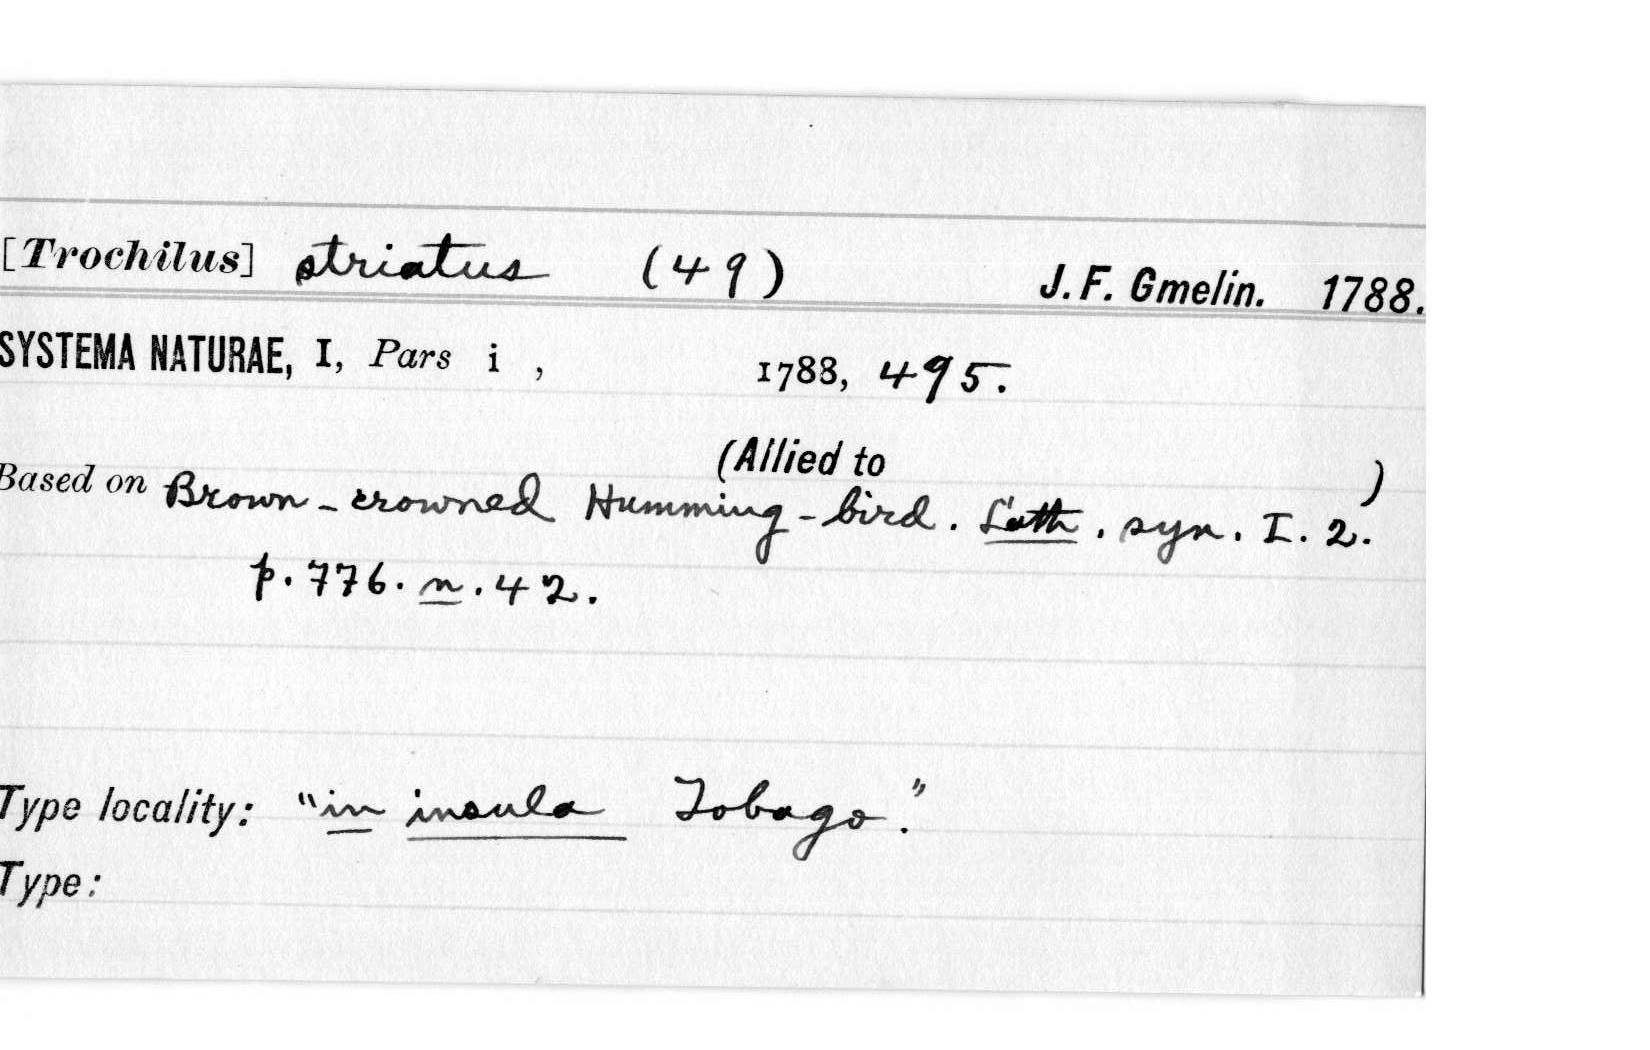 [Trochilus] striatus (49) J. F. Gmelin. 1788.
SYSTEMA NATURAE, I, Pars i , 1788, 495.
(Allied to )
Based on Brown-crowned Humming-bird. Lath. syn. I. 2.
p. 776. n. 42.
Type locality: "in insula Tobago."
Type: